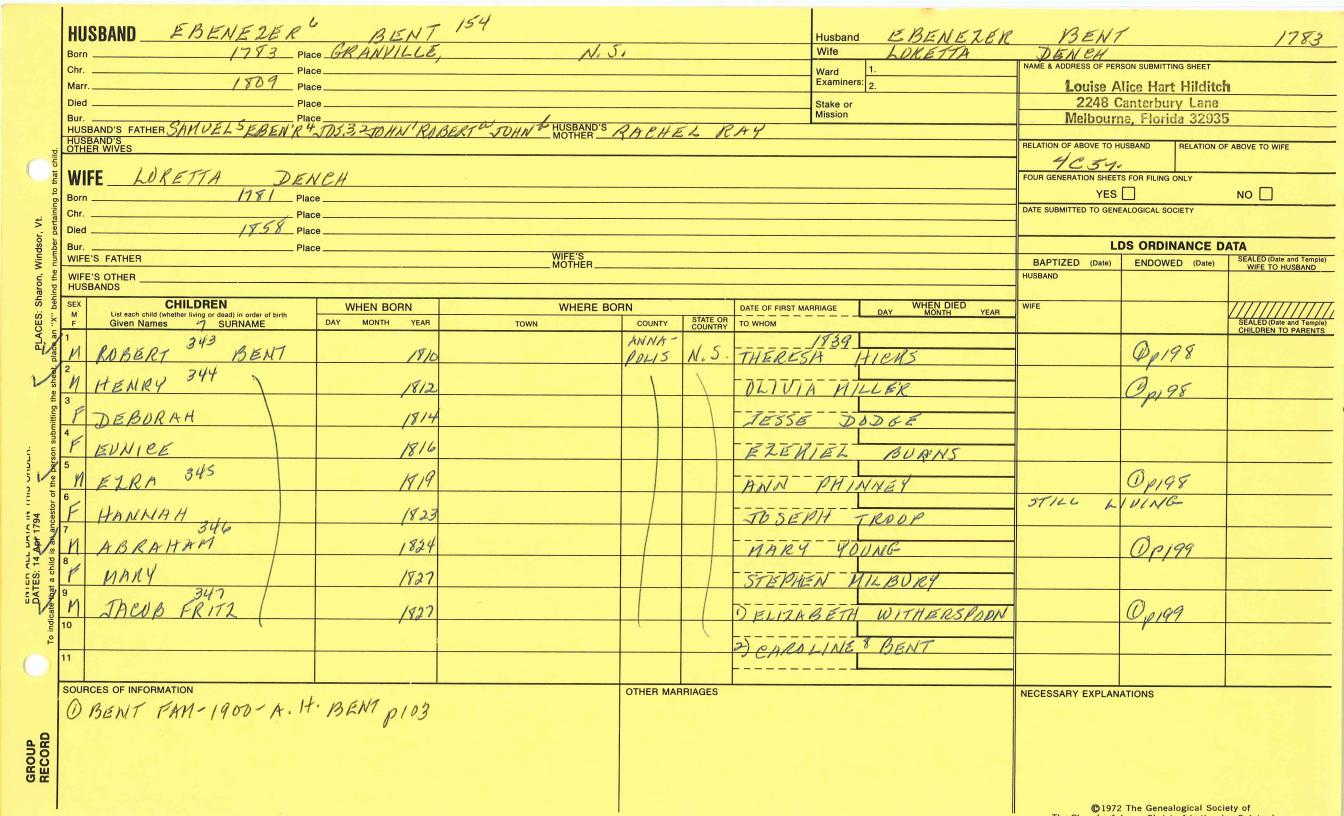 HUSBAND EBENEZER 6 BENT 154
Born 1783 Place GRANVILLE, N.S.
Chr. Place
Marr. 1809 Place
Died Place
Bur. Place
HUSBAND'S FATHER SAMUEL 5 EBEN'R 4 JOS. 3 2 JOHN ROBERT JOHN HUSBAND'S MOTHER RACHEL RAY
HUSBAND'S OTHER WIVES
WIFE LORETTA DENCH
Born 1781 Place
Chr. Place
Died 1858 Place
Bur. Place
WIFE'S FATHER WIFE'S MOTHER
WIFE'S OTHER HUSBANDS
Husband EBENEZER BENT 1783
Wife LORETTA DENCH
Ward Examiners: 1.
2.
Stake or Mission
NAME & ADDRESS OF PERSON SUBMITTING SHEET
Louise Alice Hart Hilditch
2248 Canterbury Lane
Melbourne, Florida 32935
RELATION OF ABOVE TO HUSBAND RELATION OF ABOVE TO WIFE
4C5r.
FOUR GENERATION SHEETS FOR FILING ONLY
YES NO
DATE SUBMITTED TO GENEALOGICAL SOCIETY
LDS ORDINANCE DATA
BAPTIZED (Date) ENDOWED (Date) SEALED (Date and Temple) WIFE TO HUSBAND
HUSBAND
WIFE
SEALED (Date and Temple) CHILDREN TO PARENTS
SEX M F CHILDREN WHEN BORN WHERE BORN DATE OF FIRST MARRIAGE WHEN DIED
List each child (whether living or dead) in order of birth
Given Names 7 SURNAME DAY MONTH YEAR TOWN COUNTY STATE OR COUNTRY TO WHOM DAY MONTH YEAR
1 M ROBERT 343 BENT 1810 ANNA-POLIS N.S. 1839 THERESA HICKS ① p198
2 M HENRY 344 1812 OLIVIA MILLER ① p198
3 F DEBORAH 1814 JESSE DODGE
4 F EUNICE 1816 EZEKIEL BURNS
5 M EZRA 345 1819 ANN PHINNEY ① p198
6 F HANNAH 1823 JOSEPH TROOP STILL LIVING
7 M ABRAHAM 346 1824 MARY YOUNG ① p199
8 F MARY 1827 STEPHEN MILBURY
9 M JACOB FRITZ 347 1827 1) ELIZABETH WITHERSPOON ① p199
10 2) CAROLINE 8 BENT
11
SOURCES OF INFORMATION
① BENT FAM-1900-A.H. BENT p103
OTHER MARRIAGES
NECESSARY EXPLANATIONS
©1972 The Genealogical Society of
ENTER ALL DATA IN THIS ORDER:
DATES: 14 Apr 1794 PLACES: Sharon, Windsor, Vt.
To indicate that a child is an ancestor of the person submitting the sheet, place an "X" behind the number pertaining to that child.
GROUP RECORD